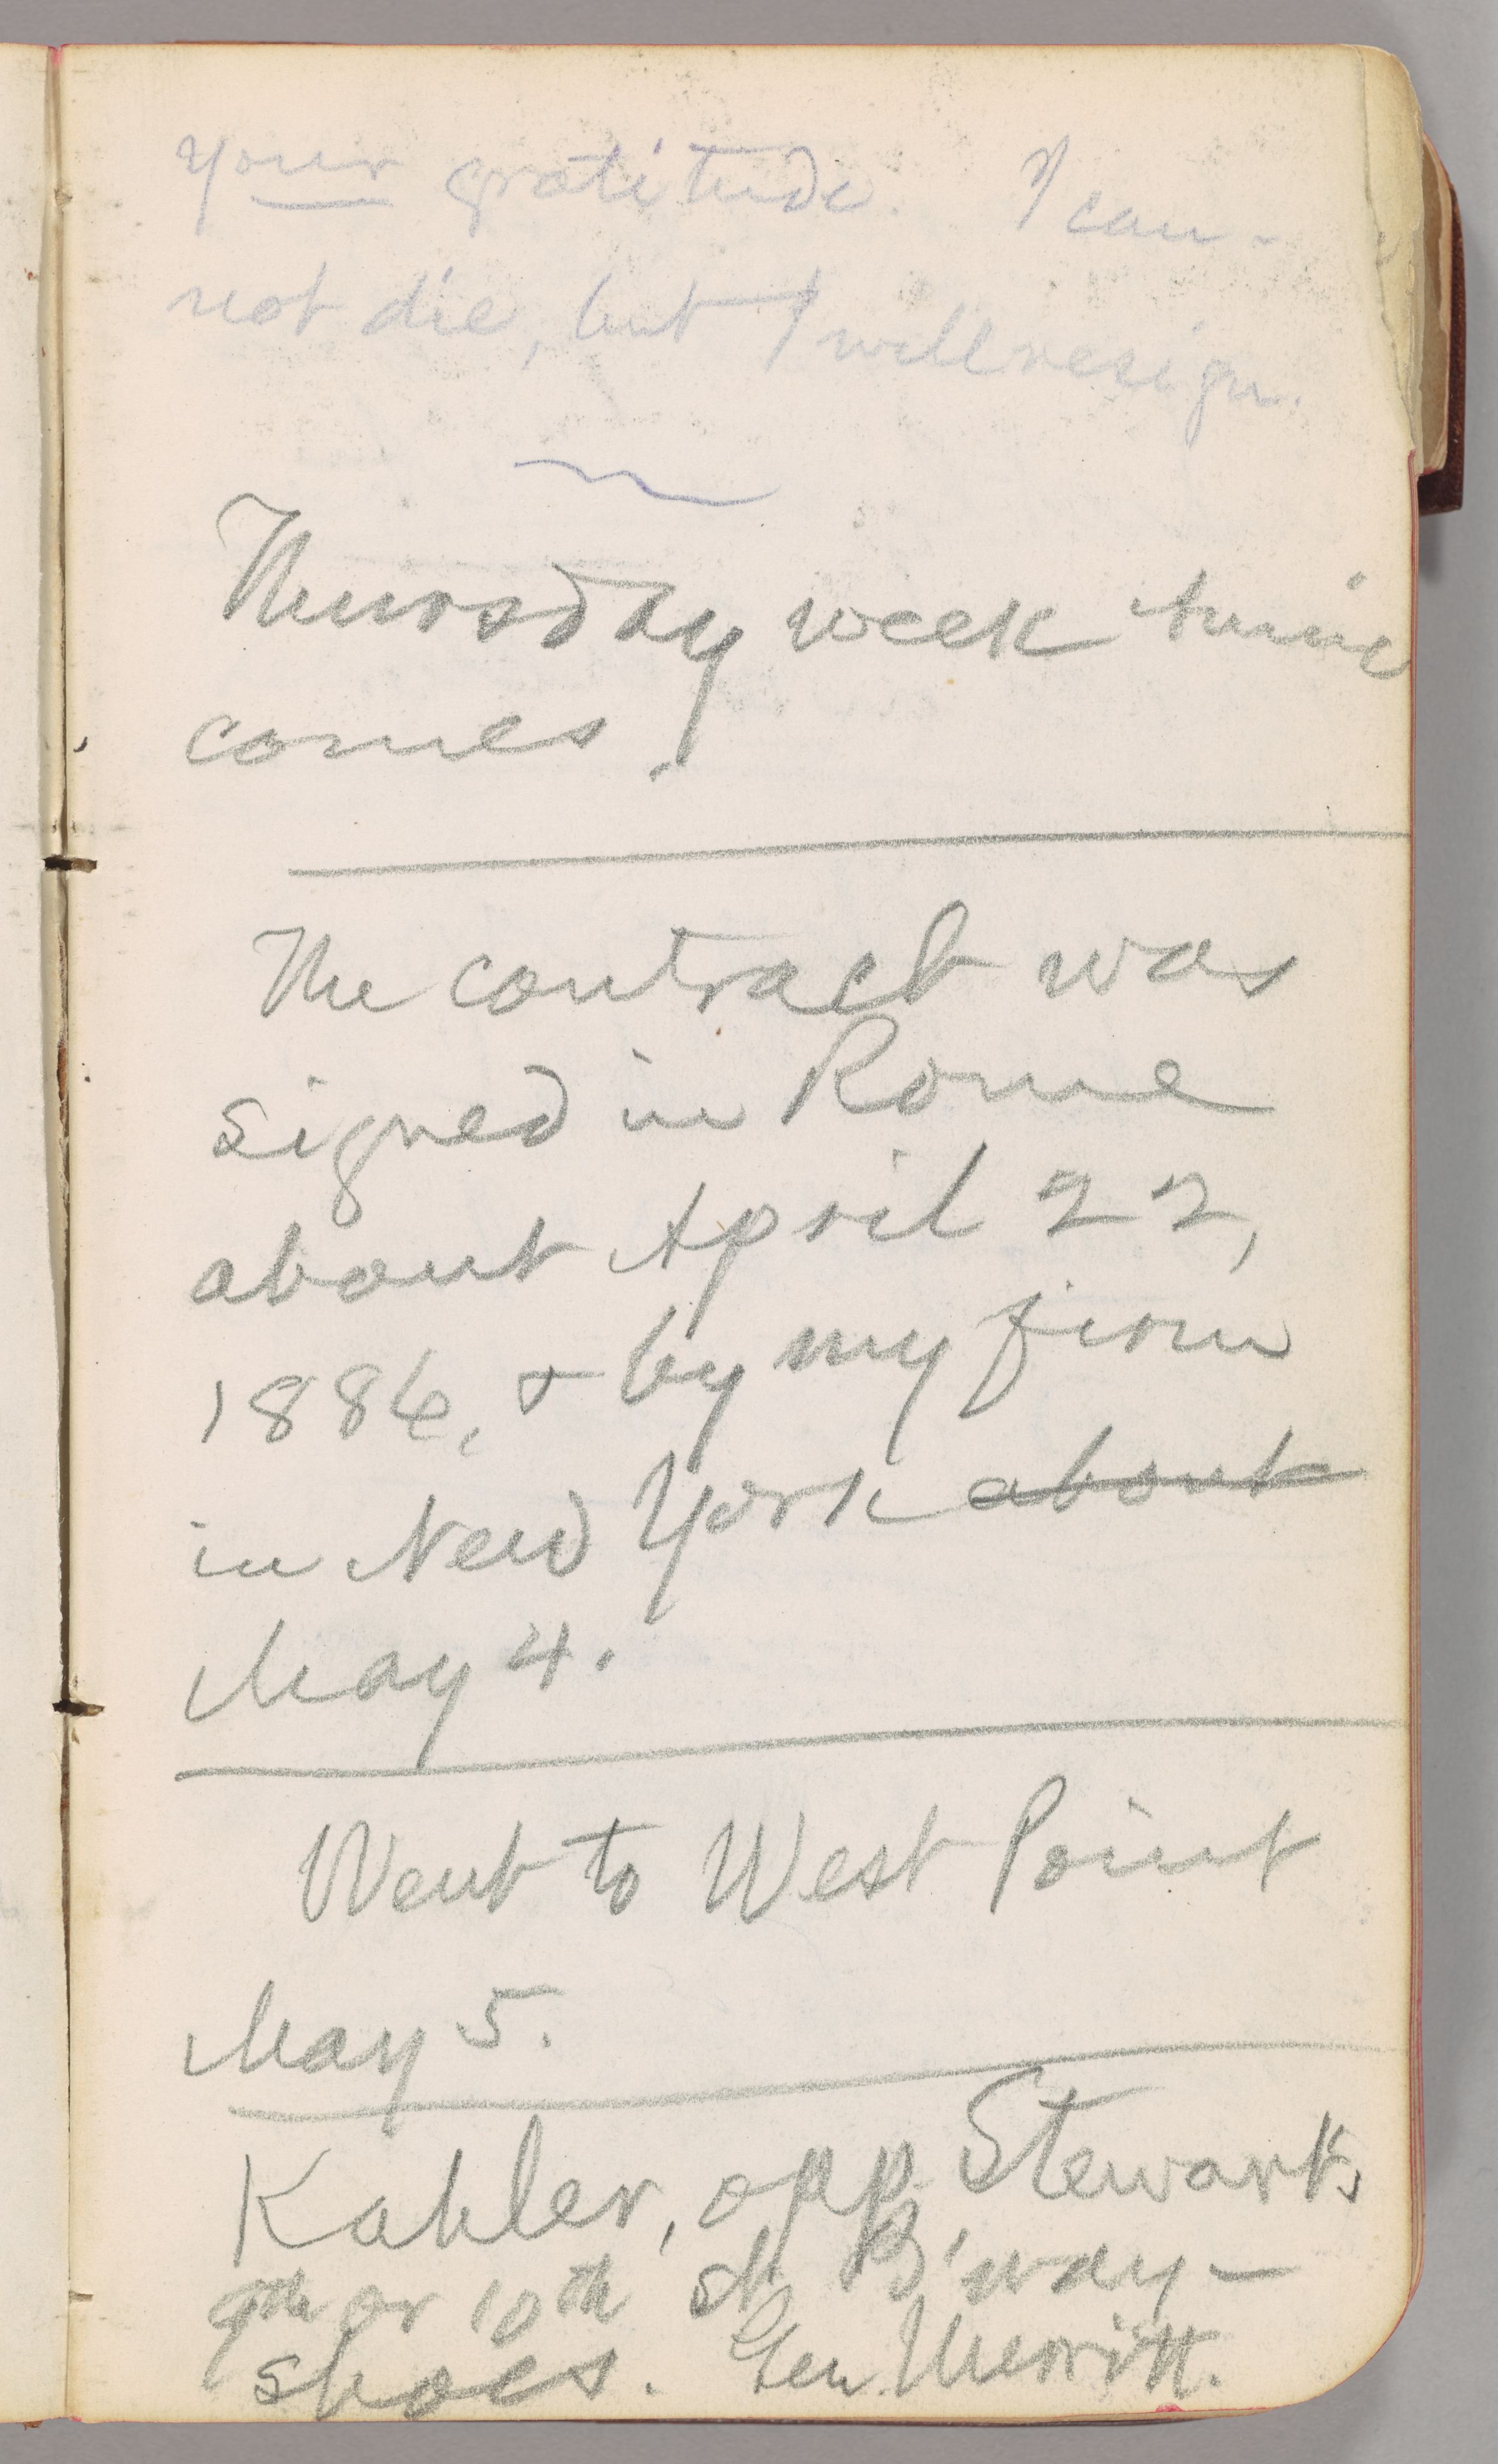 your gratitude. I can-
not die, but I will resign.
Thursday week Annie
comes.
The contract was
signed in Rome
about April 22,
1886, & by my firm
in New York about
May 4.
Went to West Point
May 5.
Kahler, opp. Stewart's
9th or 10th St B'way—
shoes. Gen. Merritt.